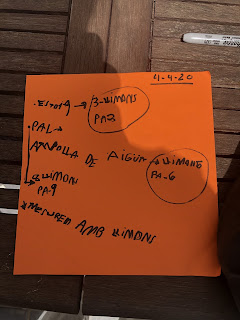 4-4-20
ESTOIG → 3-LLIMONS
PA2
PAL →
AMPOLLA DE AIGUA → LLIMONS
PA-6
8 LLIMONS
PA-9
MESUREM AMB LLIMONS